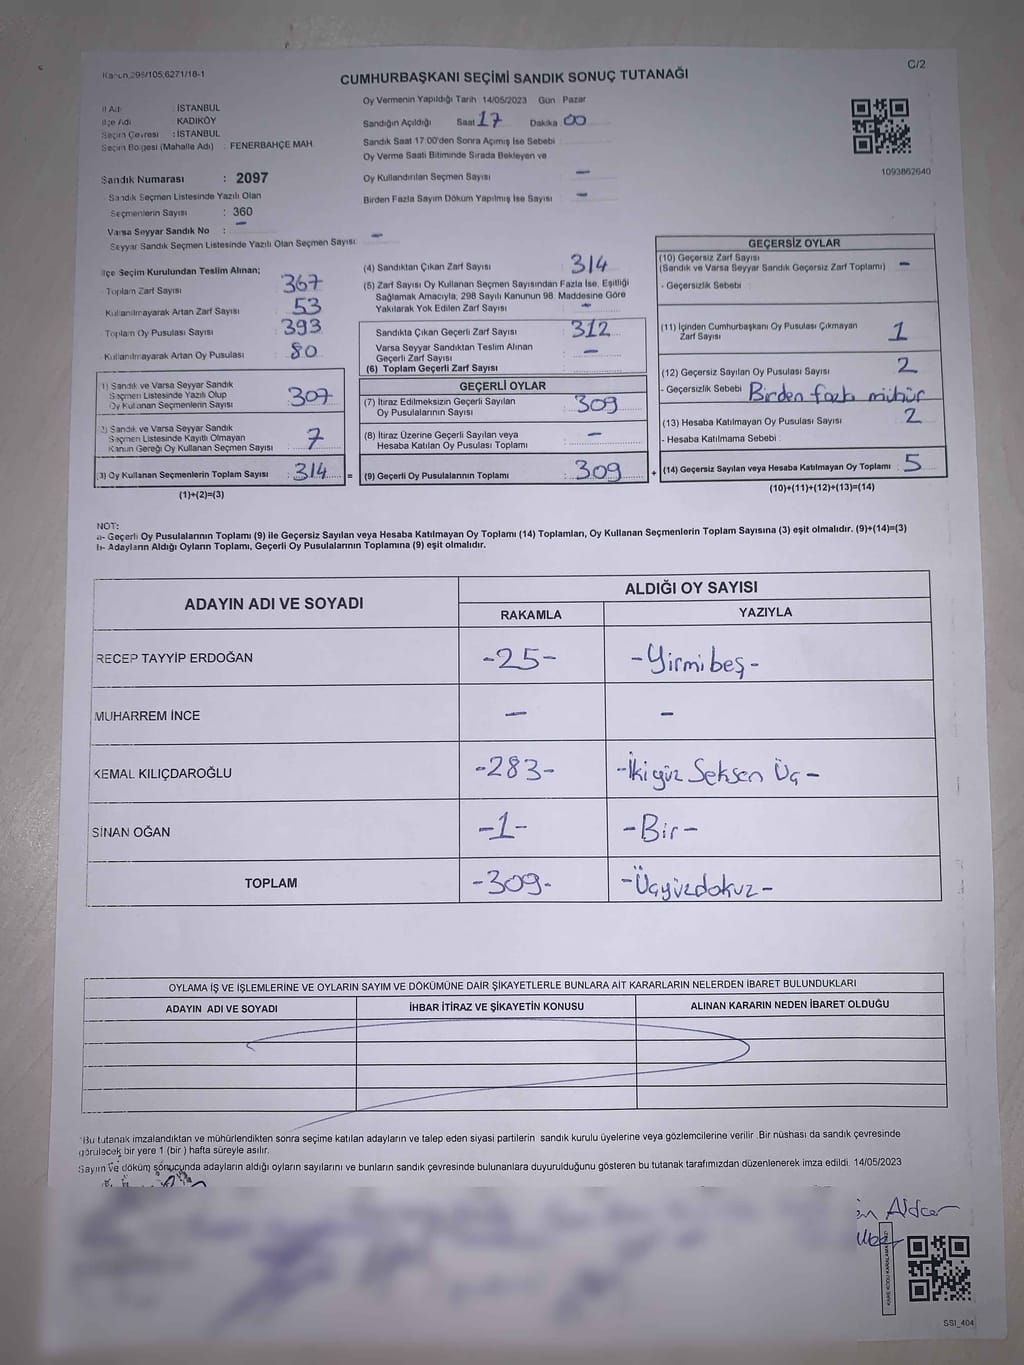 Kanun:298/105;6271/18-1
C/2
CUMHURBAŞKANI SEÇİMİ SANDIK SONUÇ TUTANAĞI
İl Adı : İSTANBUL
İlçe Adı : KADIKÖY
Seçim Çevresi : İSTANBUL
Seçim Bölgesi (Mahalle Adı) : FENERBAHÇE MAH.
Sandık Numarası : 2097
Sandık Seçmen Listesinde Yazılı Olan
Seçmenlerin Sayısı : 360
Varsa Seyyar Sandık No : -
Seyyar Sandık Seçmen Listesinde Yazılı Olan Seçmen Sayısı: -
Oy Vermenin Yapıldığı Tarih 14/05/2023 Gün Pazar
Sandığın Açıldığı Saat 17 Dakika 00
Sandık Saat 17:00'den Sonra Açımış İse Sebebi
Oy Verme Saati Bitiminde Sırada Bekleyen ve
Oy Kullandırılan Seçmen Sayısı -
Birden Fazla Sayım Döküm Yapılmış İse Sayısı -
1093862640
İlçe Seçim Kurulundan Teslim Alınan;
Toplam Zarf Sayısı : 367
Kullanılmayarak Artan Zarf Sayısı : 53
Toplam Oy Pusulası Sayısı : 393
Kullanılmayarak Artan Oy Pusulası : 80
1) Sandık ve Varsa Seyyar Sandık
Seçmen Listesinde Yazılı Olup
Oy Kullanan Seçmenlerin Sayısı : 307
2) Sandık ve Varsa Seyyar Sandık
Seçmen Listesinde Kayıtlı Olmayan
Kanun Gereği Oy Kullanan Seçmen Sayısı : 7
(3) Oy Kullanan Seçmenlerin Toplam Sayısı : 314 =
(1)+(2)=(3)
(4) Sandıktan Çıkan Zarf Sayısı : 314
(5) Zarf Sayısı Oy Kullanan Seçmen Sayısından Fazla İse, Eşitliği
Sağlamak Amacıyla, 298 Sayılı Kanunun 98. Maddesine Göre
Yakılarak Yok Edilen Zarf Sayısı : -
Sandıkta Çıkan Geçerli Zarf Sayısı : 312
Varsa Seyyar Sandıktan Teslim Alınan
Geçerli Zarf Sayısı : -
(6) Toplam Geçerli Zarf Sayısı :
GEÇERLİ OYLAR
(7) İtiraz Edilmeksizin Geçerli Sayılan
Oy Pusulalarının Sayısı : 309
(8) İtiraz Üzerine Geçerli Sayılan veya
Hesaba Katılan Oy Pusulası Toplamı : -
(9) Geçerli Oy Pusulalarının Toplamı : 309 +
GEÇERSİZ OYLAR
(10) Geçersiz Zarf Sayısı
(Sandık ve Varsa Seyyar Sandık Geçersiz Zarf Toplamı) -
- Geçersizlik Sebebi :
(11) İçinden Cumhurbaşkanı Oy Pusulası Çıkmayan
Zarf Sayısı 1
(12) Geçersiz Sayılan Oy Pusulası Sayısı 2
- Geçersizlik Sebebi : Birden fazla mühür
(13) Hesaba Katılmayan Oy Pusulası Sayısı 2
- Hesaba Katılmama Sebebi :
(14) Geçersiz Sayılan veya Hesaba Katılmayan Oy Toplamı : 5
(10)+(11)+(12)+(13)=(14)
NOT:
a- Geçerli Oy Pusulalarının Toplamı (9) ile Geçersiz Sayılan veya Hesaba Katılmayan Oy Toplamı (14) Toplamları, Oy Kullanan Seçmenlerin Toplam Sayısına (3) eşit olmalıdır. (9)+(14)=(3)
b- Adayların Aldığı Oyların Toplamı, Geçerli Oy Pusulalarının Toplamına (9) eşit olmalıdır.
ADAYIN ADI VE SOYADI
ALDIĞI OY SAYISI
RAKAMLA YAZIYLA
RECEP TAYYİP ERDOĞAN -25- -Yirmibeş-
MUHARREM İNCE - -
KEMAL KILIÇDAROĞLU -283- -İkiyüz Seksen Üç-
SİNAN OĞAN -1- -Bir-
TOPLAM -309- -Üçyüzdokuz-
OYLAMA İŞ VE İŞLEMLERİNE VE OYLARIN SAYIM VE DÖKÜMÜNE DAİR ŞİKAYETLERLE BUNLARA AİT KARARLARIN NELERDEN İBARET BULUNDUKLARI
ADAYIN ADI VE SOYADI İHBAR İTİRAZ VE ŞİKAYETİN KONUSU ALINAN KARARIN NEDEN İBARET OLDUĞU
*Bu tutanak imzalandıktan ve mühürlendikten sonra seçime katılan adayların ve talep eden siyasi partilerin sandık kurulu üyelerine veya gözlemcilerine verilir. Bir nüshası da sandık çevresinde
görülecek bir yere 1 (bir) hafta süreyle asılır.
Sayım ve döküm sonucunda adayların aldığı oyların sayılarını ve bunların sandık çevresinde bulunanlara duyurulduğunu gösteren bu tutanak tarafımızdan düzenlenerek imza edildi. 14/05/2023
SS1_404